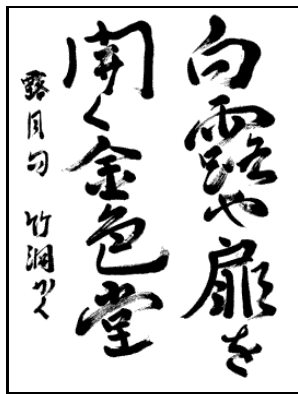 白露や扉を
開く金色堂
露月句 竹洞かく